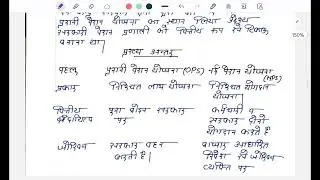 पुरानी पेंशन योजना का स्थान लिया
सरकारी पेंशन प्रणाली को वित्तीय रूप से टिकाऊ
बनाना था।
मुख्य अन्तर
पहलू पुरानी पेंशन योजना (OPS) नई पेंशन योजना (NPS)
प्रकार निश्चित लाभ योजना निश्चित योगदान योजना
वित्तीय पूरा बोझ सरकार पर कर्मचारी व सरकार दोनों योगदान करते है
जोखिम सरकार वहन करती है। बाजार आधारित निवेश जोखिम व्यक्ति पर
150%